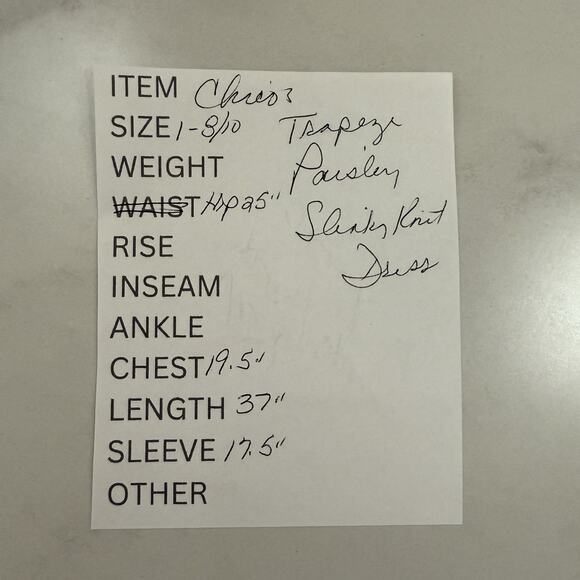 ITEM Chico's
SIZE 1-8/10 Trapeze
WEIGHT Paisley
WAIST Hip 25"
Slinky Knit
RISE
Dress
INSEAM
ANKLE
CHEST 19.5"
LENGTH 37"
SLEEVE 17.5"
OTHER